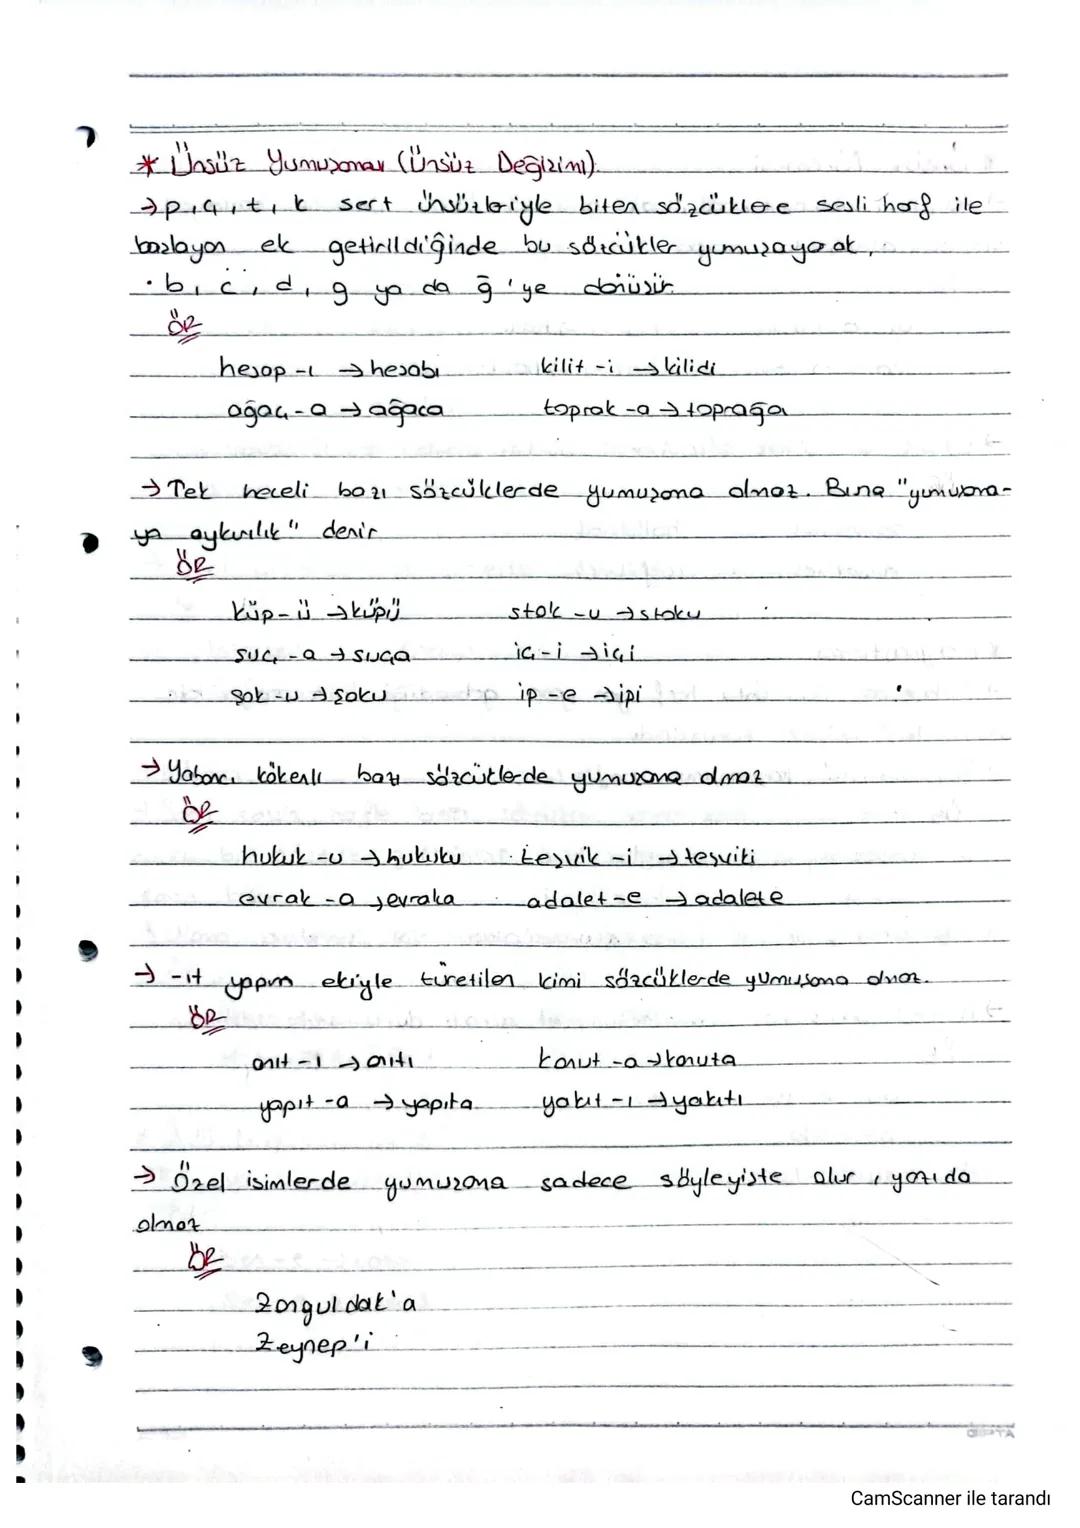 * Ünsüz Yumuşaması (Ünsüz Değişimi)
→ p, ç, t, k sert ünsüzleriyle biten sözcüklere sesli harf ile
başlayan ek getirildiğinde bu sözcükler yumuşayarak,
· b, c, d, g ya da ğ'ye dönüşür.
ÖR
hesap -ı → hesabı kilit -i → kilidi
ağaç - a → ağaca toprak -a → toprağa
→ Tek heceli bazı sözcüklerde yumuşama olmaz. Buna "yumuşama-
ya aykırılık" denir.
ÖR
küp - ü → küpü stok -u → stoku
suç - a → suça iç - i → içi
şok -u → şoku ip -e → ipi
→ Yabancı kökenli bazı sözcüklerde yumuşama olmaz
ÖR
hukuk -u → hukuku teşvik -i → teşviki
evrak -a → evraka adalet -e → adalete
→ -ıt yapım ekiyle türetilen kimi sözcüklerde yumuşama olmaz.
ÖR
anıt - ı → anıtı konut -a → konuta
yapıt -a → yapıta yakıt -ı → yakıtı
→ Özel isimlerde yumuşama sadece söyleyişte olur, yazıda
olmaz
ÖR
Zonguldak'a
Zeynep'i
CamScanner ile tarandı